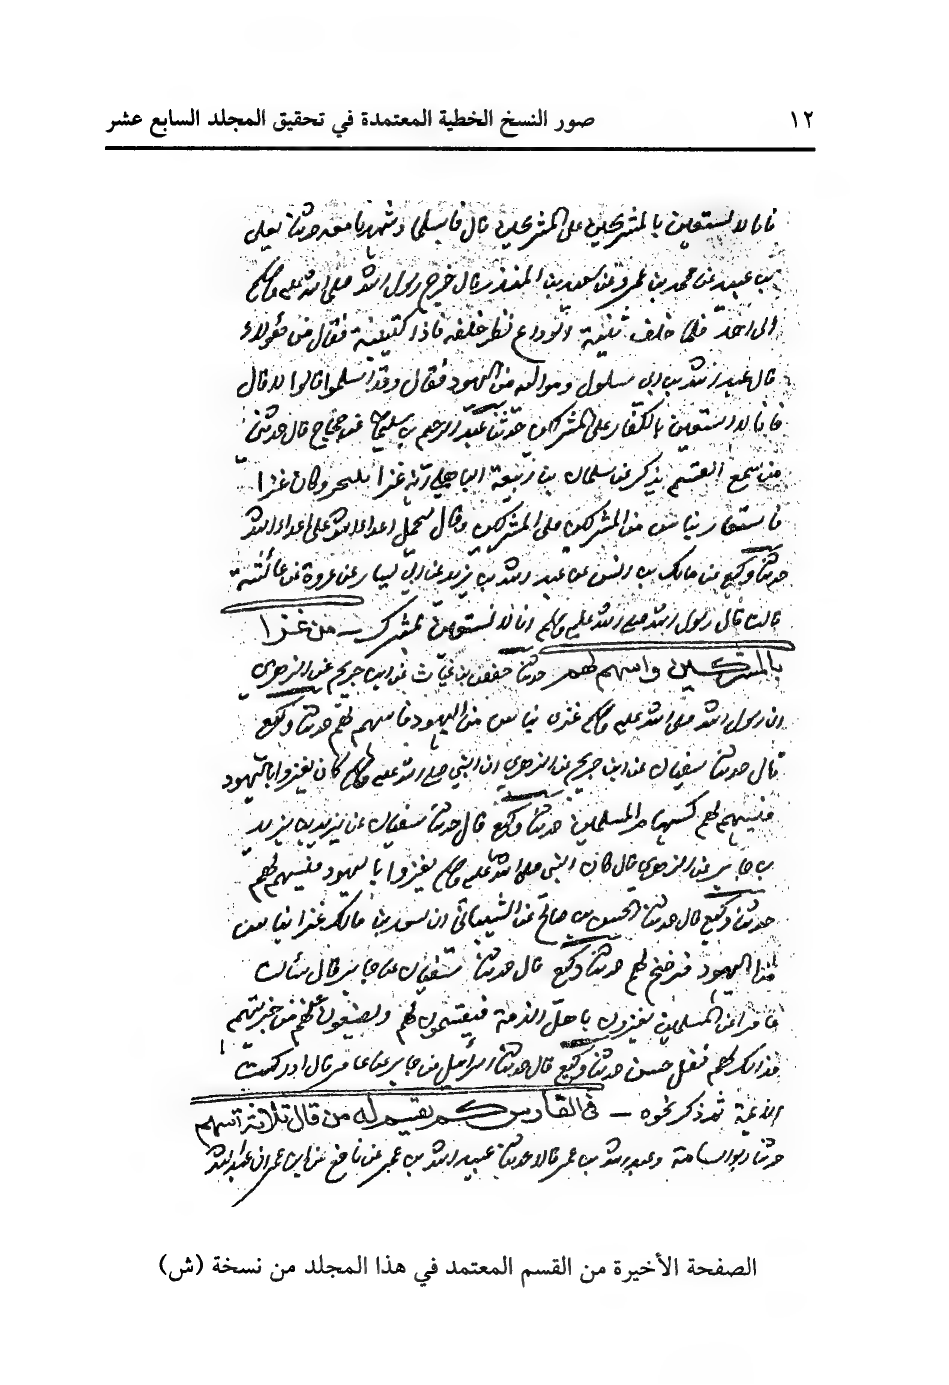 ١٢ صور النسخ الخطية المعتمدة في تحقيق المجلد السابع عشر
فانا لا نستعين بالمشركين على المشركين قال فاسلما وشهدا معه حدثنا يعلى
بن عبيد عن محمد بن عمرو عن سعد بن المنذر قال خرج رسول الله صلى الله عليه وسلم
الى احد فلما خلف ثنية الوداع نظر خلفه فاذا كتيبة فقال من هؤلاء
قال عبد الله بن ابي سلول ومواليه من اليهود فقال وقد اسلموا قالوا لا قال
فانا لا نستعين بالكفار على المشركين حدثنا عبد الرحيم بن سليمان عن حجاج قال حدثني
من سمع القسم يذكر عن سلمان بن ربيعة الباهلي انه غزا بلنجر وكان غزا
فاستعان بناس من المشركين على المشركين وقال ليحمل اعداء الله على اعداء الله
حدثنا وكيع عن مالك بن انس عن عبد الله بن يزيد عن ابي نيار عن عروة عن عائشة
قالت قال رسول الله صلى الله عليه وسلم انا لا نستعين بمشرك من غزا
بالمشركين واسهم لهم حدثنا حفص بن غياث عن ابن جريج عن الزهري
ان رسول الله صلى الله عليه وسلم غزى بناس من اليهود فاسهم لهم حدثنا وكيع
قال حدثنا سفيان عن ابن جريج عن الزهري ان النبي صلى الله عليه وسلم كان يغزو باليهود
فيسهم لهم كسهام المسلمين حدثنا وكيع قال حدثنا سفيان عن يزيد بن يزيد
بن جابر عن الزهري قال كان النبي صلى الله عليه وسلم يغزوا باليهود فيسهم لهم
حدثنا وكيع قال حدثنا الحسن بن صالح عن الشيباني ان سعد بن مالك غزا بناس
من اليهود فرضخ لهم حدثنا وكيع قال حدثنا سفيان عن جابر قال سالت
عامرا عن المسلمين يغزون باهل الذمة فيقسمون لهم ويضعون عنهم من جزيتهم
فذلك لهم نفل حسن حدثنا وكيع قال حدثنا اسرائيل عن جابر عن عامر قال ادركت
الائمة ثم ذكر نحوه في الفارس كم يقسم له من قال ثلاثة اسهم
حدثنا ابو اسامة وعبد الله بن نمير قالا حدثنا عبيد الله بن عمر عن نافع عن ابن عمر ان
الصفحة الأخيرة من القسم المعتمد في هذا المجلد من نسخة (ش)